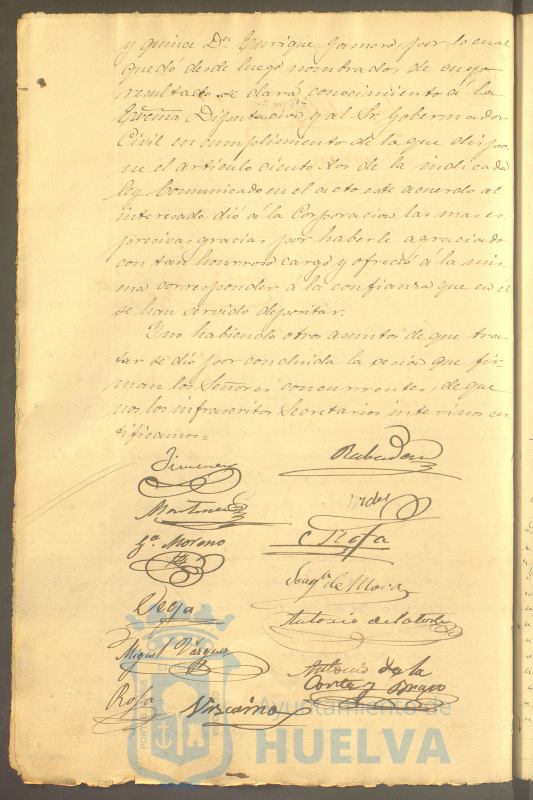 y quince Dn. Enrique Gamero, por lo cual
quedó desde luego nombrado, de cuyo
resultado se dará conocimiento á la
Excma Diputacion, y al Sr. Gobernador
Civil en cumplimiento de lo que dispo-
ne el articulo ciento dos de la indicada
ley. Comunicado en el acto este acuerdo al
interesado, dió á la Corporacion las mas es-
presivas gracias por haberle agraciado
con tan honroso cargo y ofreció á la mis-
ma corresponder á la confianza que en él
se han servido depositar.
Y no habiendo otros asuntos de que tra-
tar se dió por concluida la sesion que fir-
man los Señores concurrentes, de que
nos los infrascritos Secretarios interinos cer-
tificamos=
Jimenez
Martinez
Ga. Moreno
Joaqn. de Mora
Vega
Antonio de la Corte
Miguel Vázquez
Antonio de la
Corte y Bravo
Rofa Vizcaino
Ayuntamiento de
HUELVA